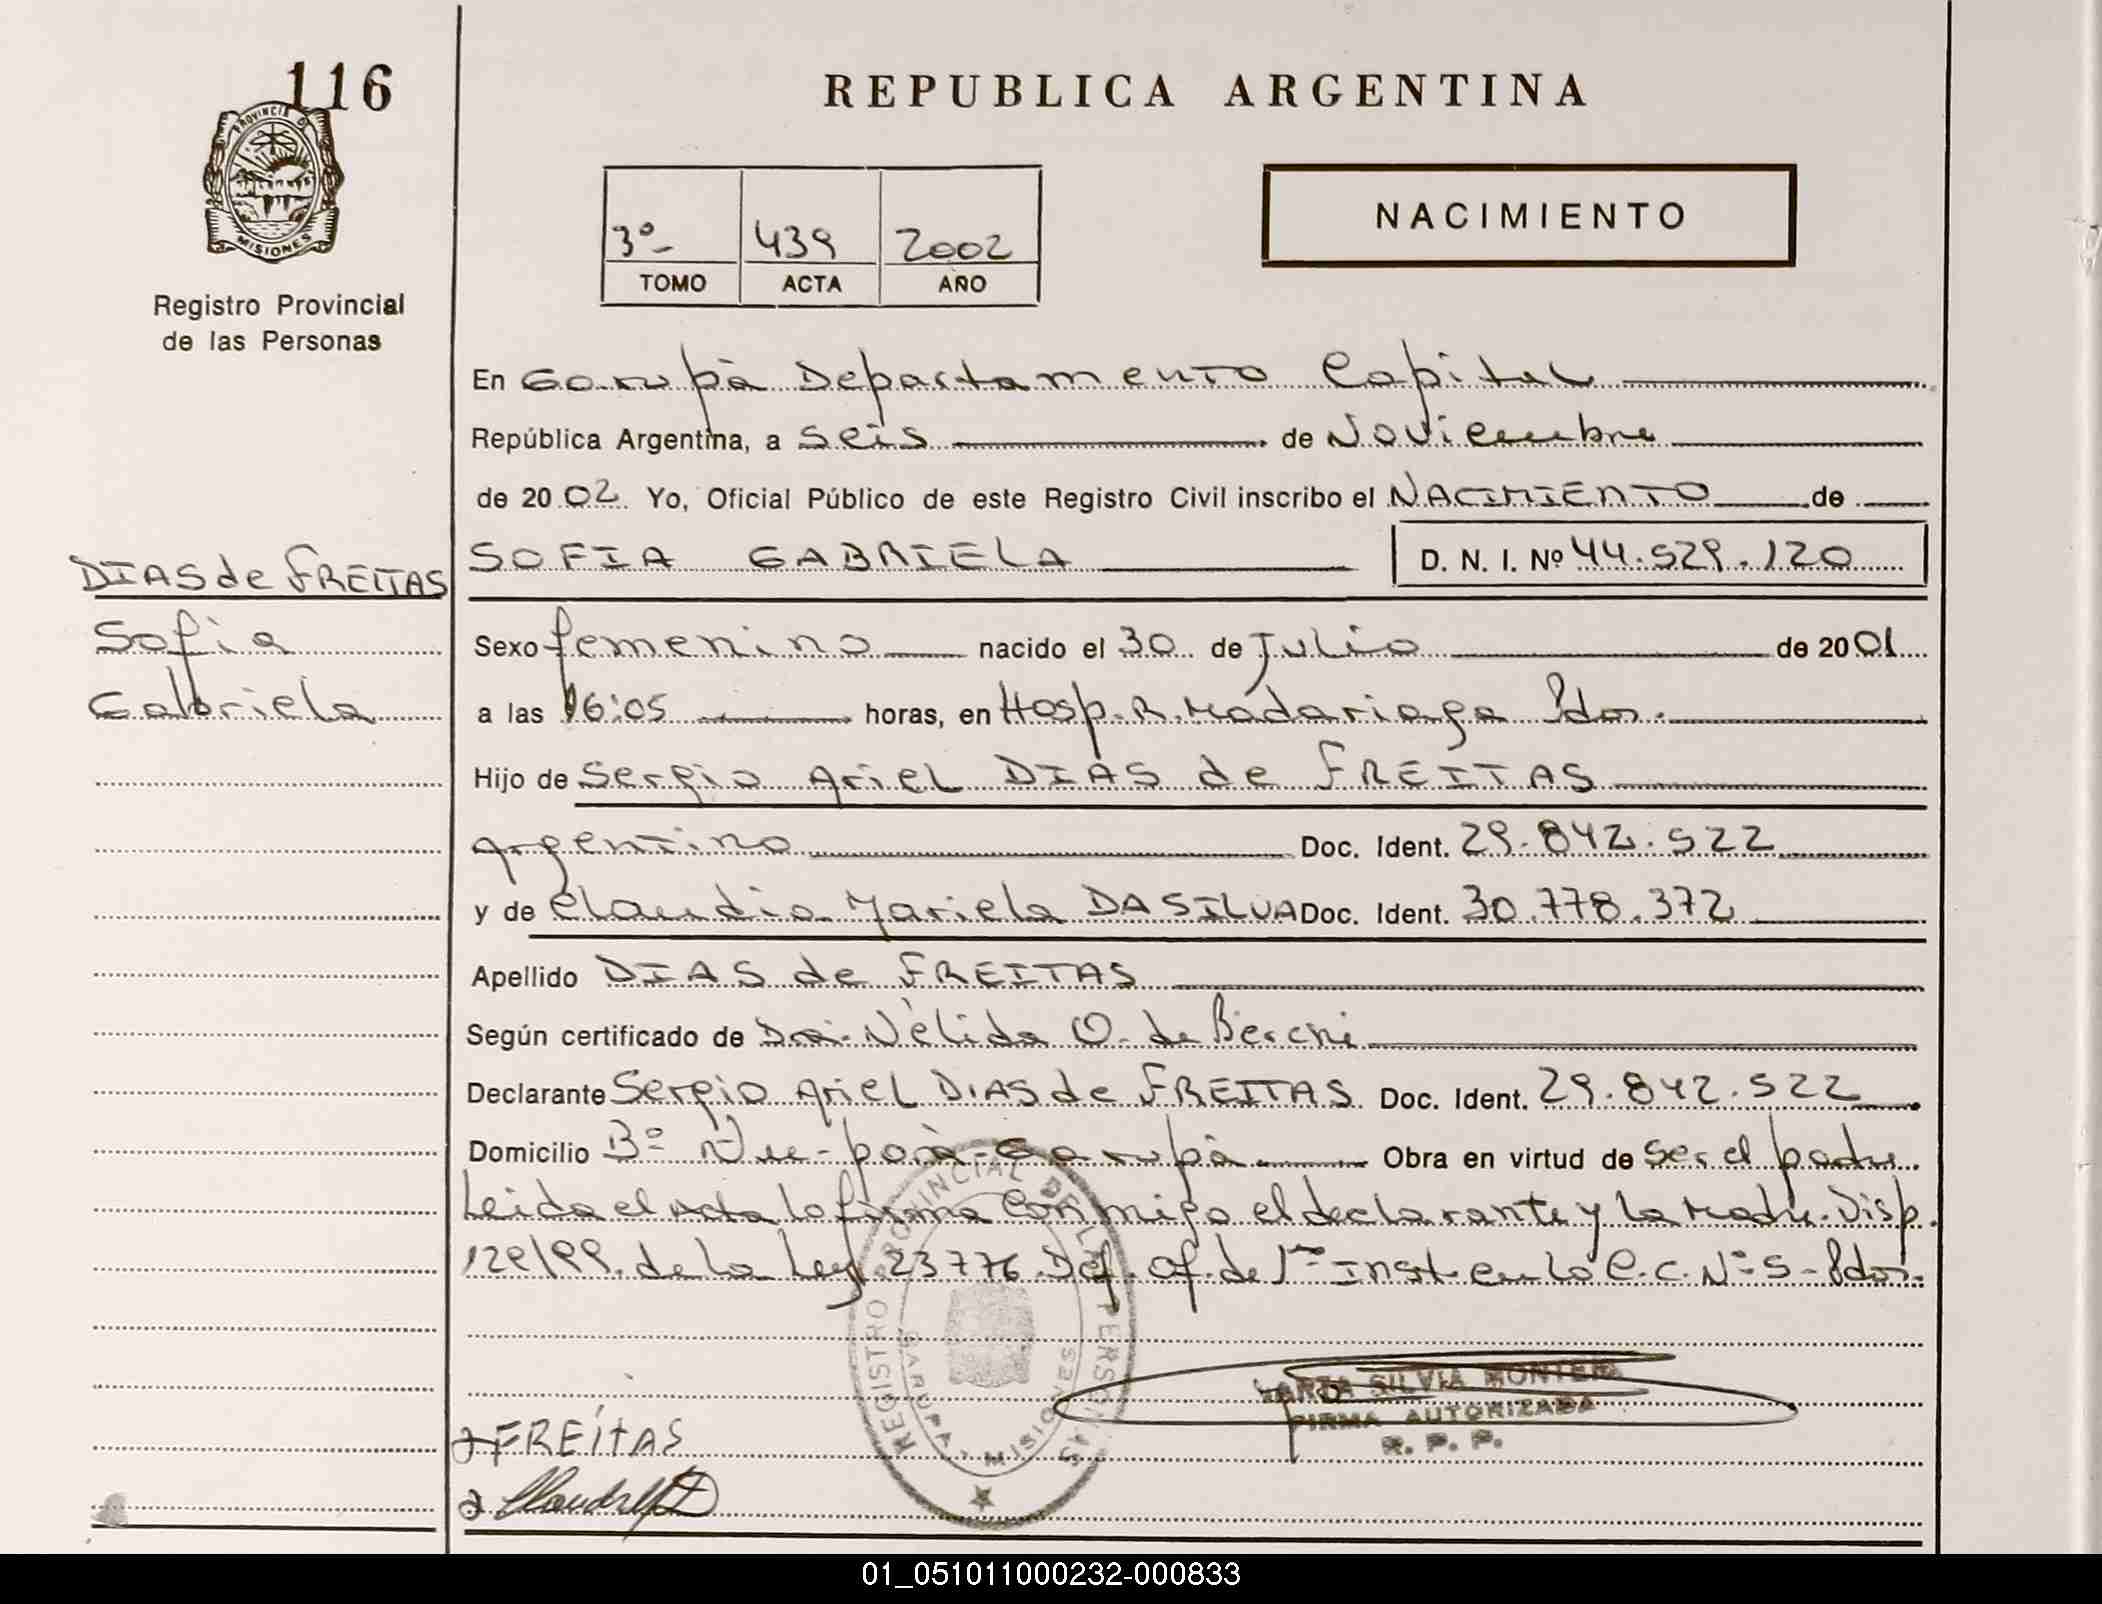 116
PROVINCIA D
MISIONES
Registro Provincial
de las Personas
REPUBLICA ARGENTINA
3º 439 2002
TOMO ACTA AÑO
NACIMIENTO
En Garupá Departamento Capital
República Argentina, a seis de Noviembre
de 2002 Yo, Oficial Público de este Registro Civil inscribo el NACIMIENTO de
SOFIA GABRIELA D. N. I. Nº 44.529.120
DIAS de FREITAS
Sofia
Gabriela
Sexo femenino nacido el 30 de Julio de 2001
a las 16:05 horas, en Hosp. R. Madariaga Pdas.
Hijo de Sergio Ariel DIAS de FREITAS
Argentino Doc. Ident. 29.842.522
y de Claudia Mariela DA SILVA Doc. Ident. 30.778.372
Apellido DIAS de FREITAS
Según certificado de Dra. Nélida O. de
Declarante Sergio Ariel DIAS de FREITAS Doc. Ident. 29.842.522
Domicilio Bº Ñu-porá-Garupá Obra en virtud de ser el padre
Leida el Acta la firma conmigo el declarante y la Madre. Disp.
de la Ley 23776 Def. Of. de 1ra Inst. en lo C.C. Nº 5-Pdas.
REGISTRO PROVINCIAL DE LAS PERSONAS
GARUPA
MISIONES
SILVIA
FIRMA AUTORIZADA
R. P. P.
FREÍTAS
01_051011000232-000833